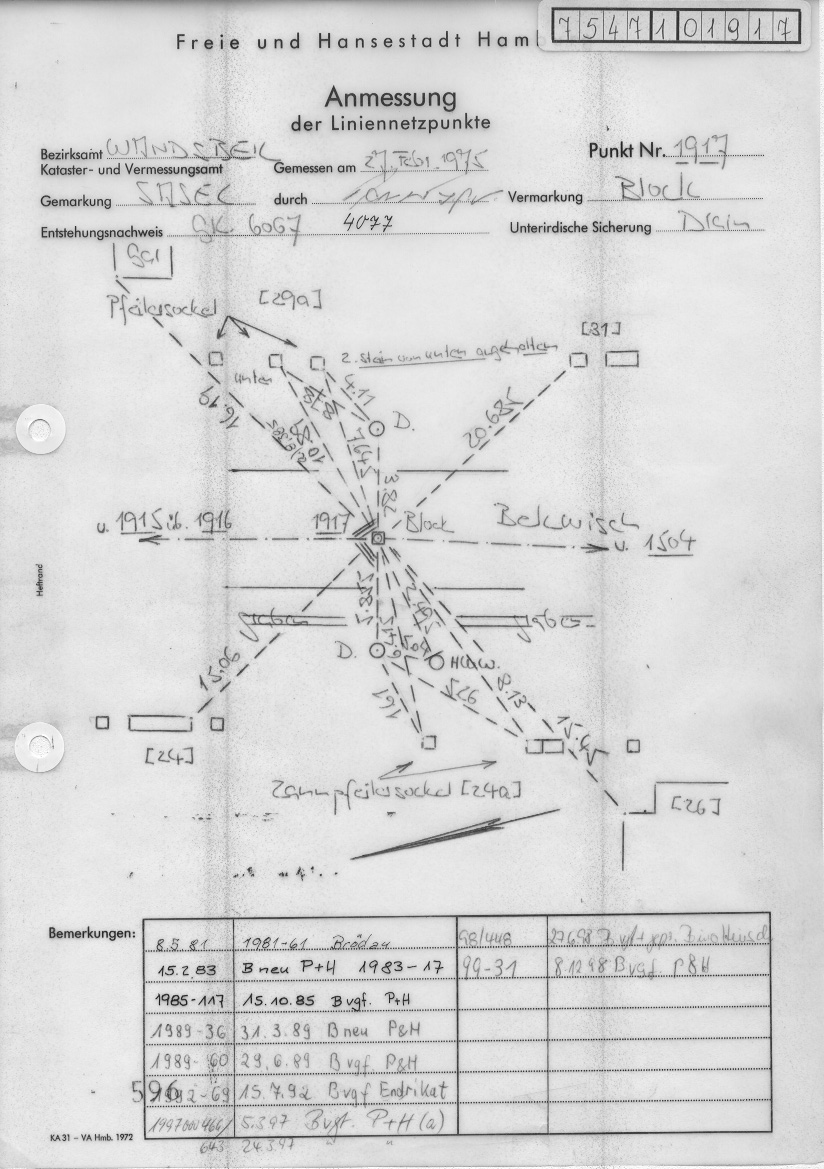 7547101917
Freie und Hansestadt Hamb
Anmessung
der Liniennetzpunkte
Bezirksamt WANDSBEK
Kataster- und Vermessungsamt
Gemessen am 27. Febr. 1975
Punkt Nr. 1917
Gemarkung SASEL
durch
Vermarkung Block
Entstehungsnachweis GK 6067 4077
Unterirdische Sicherung Drain
Gar
Pfeilersockel [29a]
[31]
2. Stein von unten angehalten
unten
4.11
D.
16.19
20.685
7.645
3.82
u. 1915 üb. 1916
1917
Block
Bekwisch
u. 1504
Heftrand
5.835
Graben
Graben
D.
H.d.W.
15.06
5.26
8.13
1.61
[24]
Zaunpfeilersockel [24a]
[26]
Bemerkungen:
8.5.81 1981-61 Brödau
98/448
15.2.83 B neu P+H 1983-17
99-31 8.12.98 B vgf. P&H
1985-117 15.10.85 B vgf. P+H
1989-36 31.3.89 B neu P&H
1989-60 29.6.89 B vgf P&H
596
1992-69 15.7.92 B vgf Endrikat
5.3.97 B vgf. P+H (a)
643 24.3.97 " "
KA 31 – VA Hmb. 1972